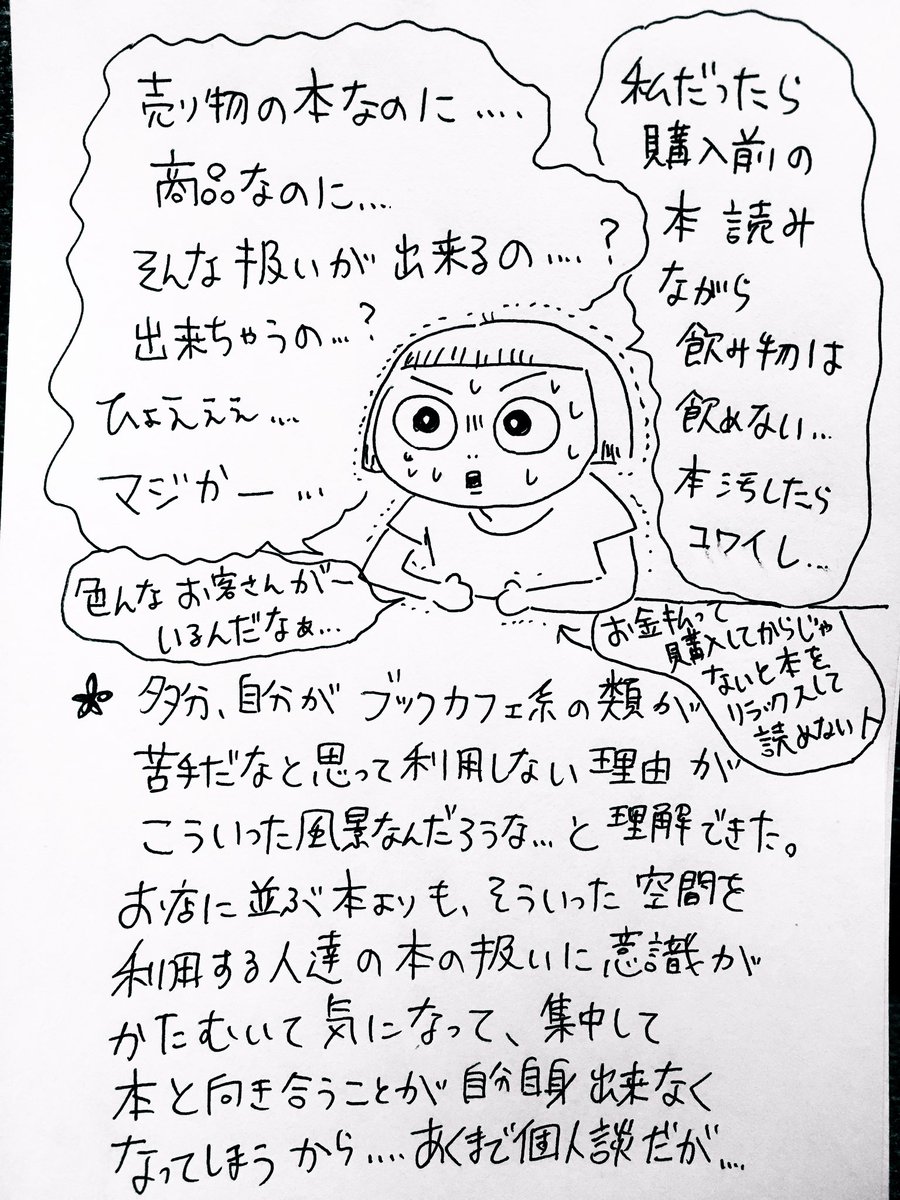 私だったら
購入前の
本読み
ながら
飲み物は
飲めない…
本汚したら
コワイし…
売り物の本なのに‥‥
商品なのに…
そんな扱いが出来るの‥‥?
出来ちゃうの…?
ひょえええ‥‥
マジかー…
色んなお客さんがー
いるんだなぁ…
お金払って
購入してからじゃ
ないと本を
リラックスして
読めない人
多分、自分がブックカフェ系の類が
苦手だなと思って利用しない理由が
こういった風景なんだろうな…と理解できた。
お店に並ぶ本よりも、そういった空間を
利用する人達の本の扱いに意識が
かたむいて気になって、集中して
本と向き合うことが自分自身出来なく
なってしまうから‥‥あくまで個人談だが‥‥